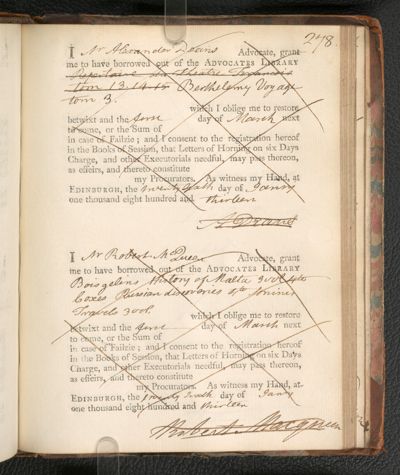 278.
I Mr Alexander Deans Advocate, grant
me to have borrowed out of the ADVOCATES LIBRARY
Repertoire du Theatre Francois
tom 13. 14. 15 Berthelemy Voyage
tom 3.
which I oblige me to restore
betwixt and the first day of March next
to come, or the Sum of
in case of Failzie; and I consent to the registration hereof
in the Books of Session, that Letters of Horning on six Days
Charge, and other Executorials needful, may pass thereon,
as effeirs, and thereto constitute
my Procurators. As witness my Hand, at
EDINBURGH, the day of Janry
one thousand eight hundred and thirteen
A Deans
I Mr Robert McQueen Advocate, grant
me to have borrowed out of the ADVOCATES LIBRARY
Boisgelins History of Malta 3 vol 4to
Coxes Russian discoveries 4to
Travels 3 vol.
which I oblige me to restore
betwixt and the first day of March next
to come, or the Sum of
in case of Failzie; and I consent to the registration hereof
in the Books of Session, that Letters of Horning on six Days
Charge, and other Executorials needful, may pass thereon,
as effeirs, and thereto constitute
my Procurators. As witness my Hand, at
EDINBURGH, the day of Janry
one thousand eight hundred and thirteen
Robert Macqueen